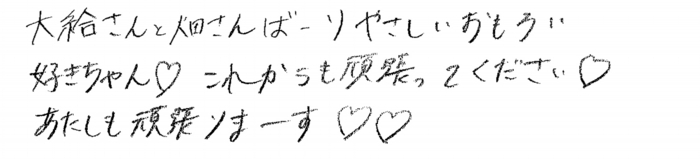 大給さんと畑さんばーりやさしいおもろい
好きちゃん♡ これからも頑張ってください♡
あたしも頑張りまーす ♡♡